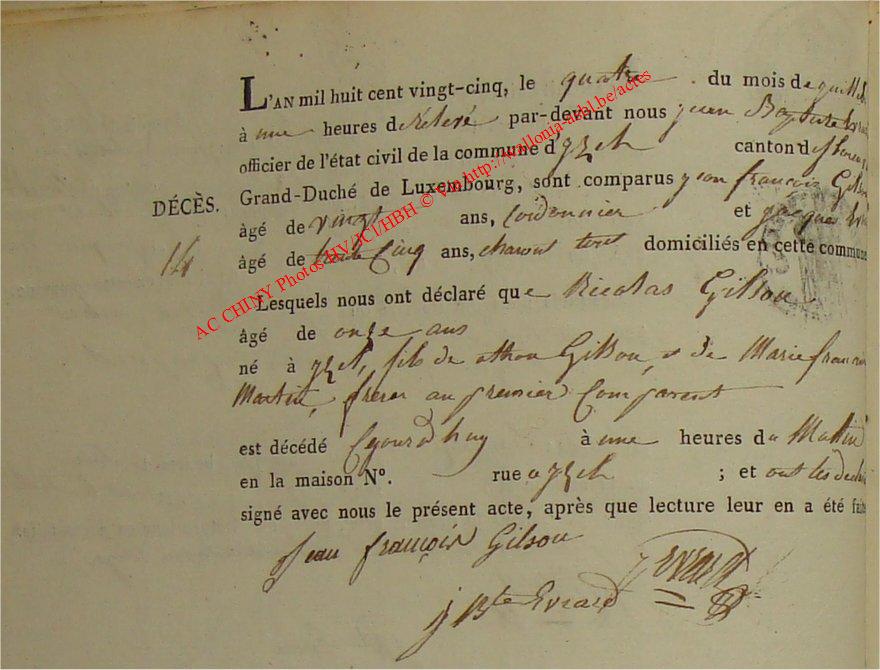 L'AN mil huit cent vingt-cinq, le quatre du mois de
à une heures de relevé par-devant nous jean Baptiste
officier de l'état civil de la commune d'yzel canton de
Grand-Duché de Luxembourg, sont comparus jean françois
DÉCÈS.
âgé de vingt ans, Cordonnier et jacque
14
âgé de trente Cinq ans, domiciliés en cette commune
Lesquels nous ont déclaré que Nicolas Gilson
âgé de onze ans
né à yzel, fils de Gilson, & de Marie
Martin, frerer au premier Comparent
est décédé à une heures du Mattin
en la maison Nº. rue a yzel ; et ont les
signé avec nous le présent acte, après que lecture leur en a été faite
Jean françois Gilson
j Evrard
j Bte Evrard
AC CHINY Photos HV/JCl/HBH © Via http://wallonia-asbl.be/actes